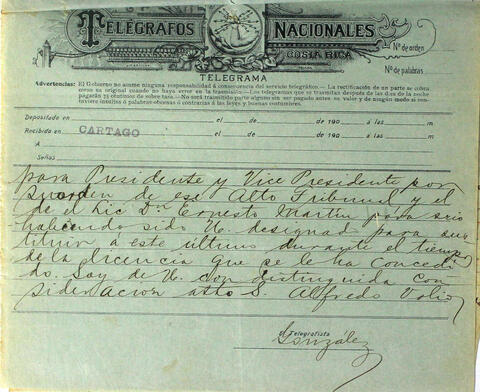 TELÉGRAFOS NACIONALES
COSTA RICA
Nº de orden
TELEGRAMA
Nº de palabras
Advertencias: El Gobierno no asume ninguna responsabilidad á consecuencia del servicio telegráfico. — La rectificación de un parte se cobra
como su original cuando no haya error en la trasmisión. — Los telegramas que se tramitan después de las diez de la noche
pagarán 75 céntimos de sobre tasa. — No será trasmitido parte alguno sin ser pagado antes su valor y de ningún modo si con-
tuviere insultos ó palabras obscenas ó contrarias á las leyes y buenas costumbres.
Depositado en el de de 190 á las m
Recibido en CARTAGO el de de 190 á las m
A
Señas
para Presidente y Vice Presidente por
su orden de ese Alto Tribunal y el
de el Lic Dn Ernesto Martin para srio
habiendo sido U. designad para sus
tituir a este ultimo durante el tiempo
de la licencia que se le ha concedi
do. Soy de U. con distinguida con
sideracion atto S. Alfredo Volio
Telegrafista
González